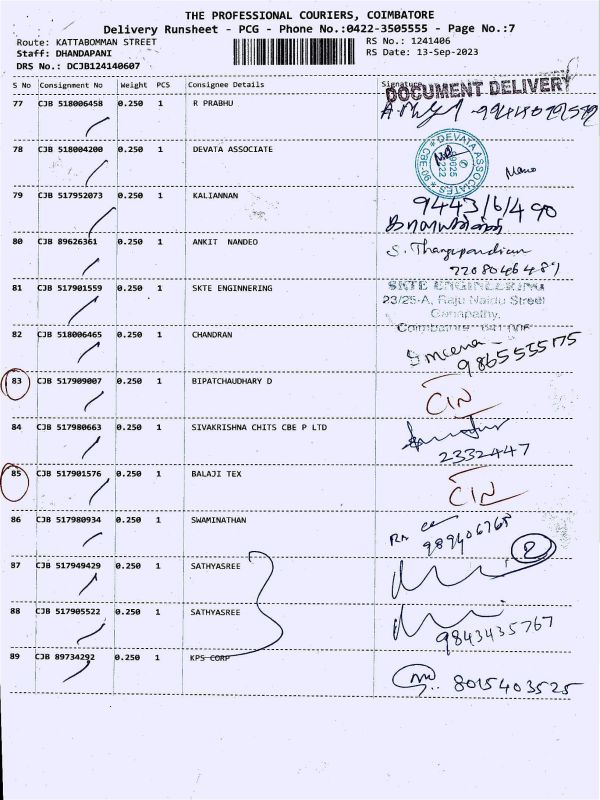 THE PROFESSIONAL COURIERS, COIMBATORE
Delivery Runsheet - PCG - Phone No.:0422-3505555 - Page No.:7
Route: KATTABOMMAN STREET RS No.: 1241406
Staff: DHANDAPANI RS Date: 13-Sep-2023
DRS No.: DCJB124140607
S No Consignment No Weight PCS Consignee Details Signature
DOCUMENT DELIVERY
77 CJB 518006458 0.250 1 R PRABHU
78 CJB 518004200 0.250 1 DEVATA ASSOCIATE
* DEVATA ASSOCIATES * CBE-90
Mano
79 CJB 517952073 0.250 1 KALIANNAN
80 CJB 89626361 0.250 1 ANKIT NANDEO S. Thangapandian
81 CJB 517901559 0.250 1 SKTE ENGINNERING SKTE ENGINEERING
23/25-A, Raju Naidu Street
Ganapathy,
Coimbatore - 641 006
82 CJB 518006465 0.250 1 CHANDRAN
Smeena
9865535175
83 CJB 517909007 0.250 1 BIPATCHAUDHARY D CIN
84 CJB 517980663 0.250 1 SIVAKRISHNA CHITS CBE P LTD
2332447
85 CJB 517901576 0.250 1 BALAJI TEX CIN
86 CJB 517980934 0.250 1 SWAMINATHAN
2
87 CJB 517949429 0.250 1 SATHYASREE
88 CJB 517905522 0.250 1 SATHYASREE
9843435767
89 CJB 89734292 0.250 1 KPS CORP
8015403525